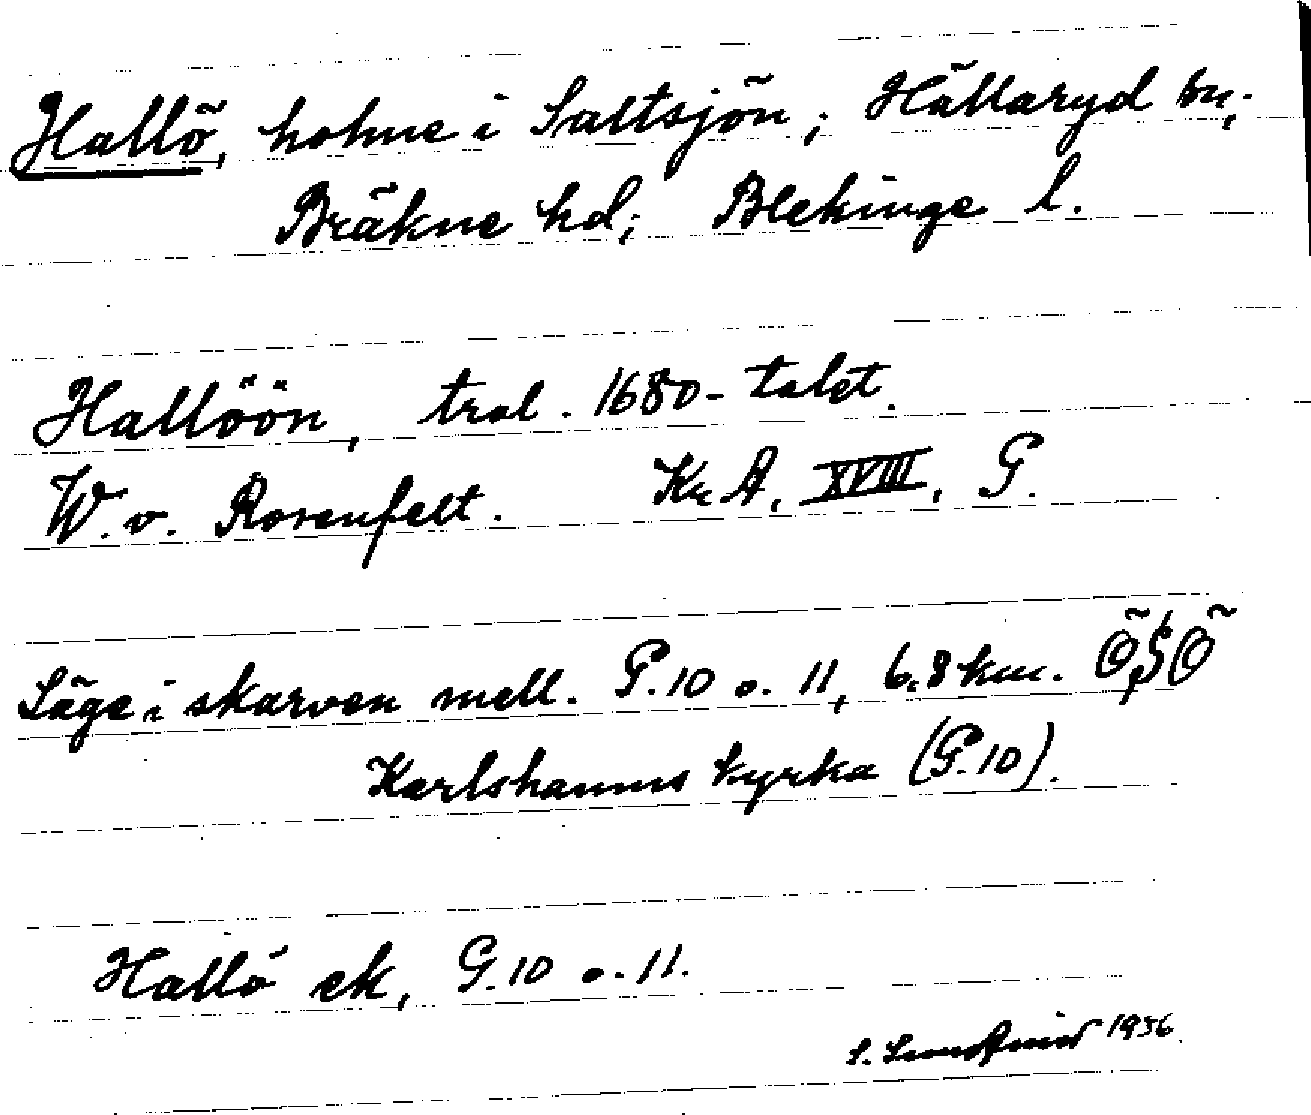 Hallö, holme i Saltsjön; Hällaryd sn;
Bräkne hd; Blekinge l.
Hallöön, trol. 1680-talet.
W. v. Rosenfelt. Kr. A, XVIII, G.
Läge i skarven mell. G.10 o. 11, 6,8 km. ÖSÖ
Karlshamns kyrka (G.10).
Hallö ek, G.10 o. 11.
1956.